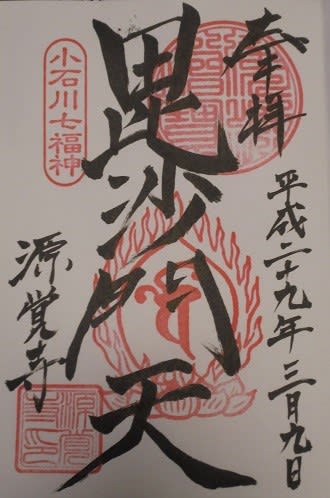 奉拝
平成二十九年三月九日
毘沙門天
小石川七福神
源覚寺